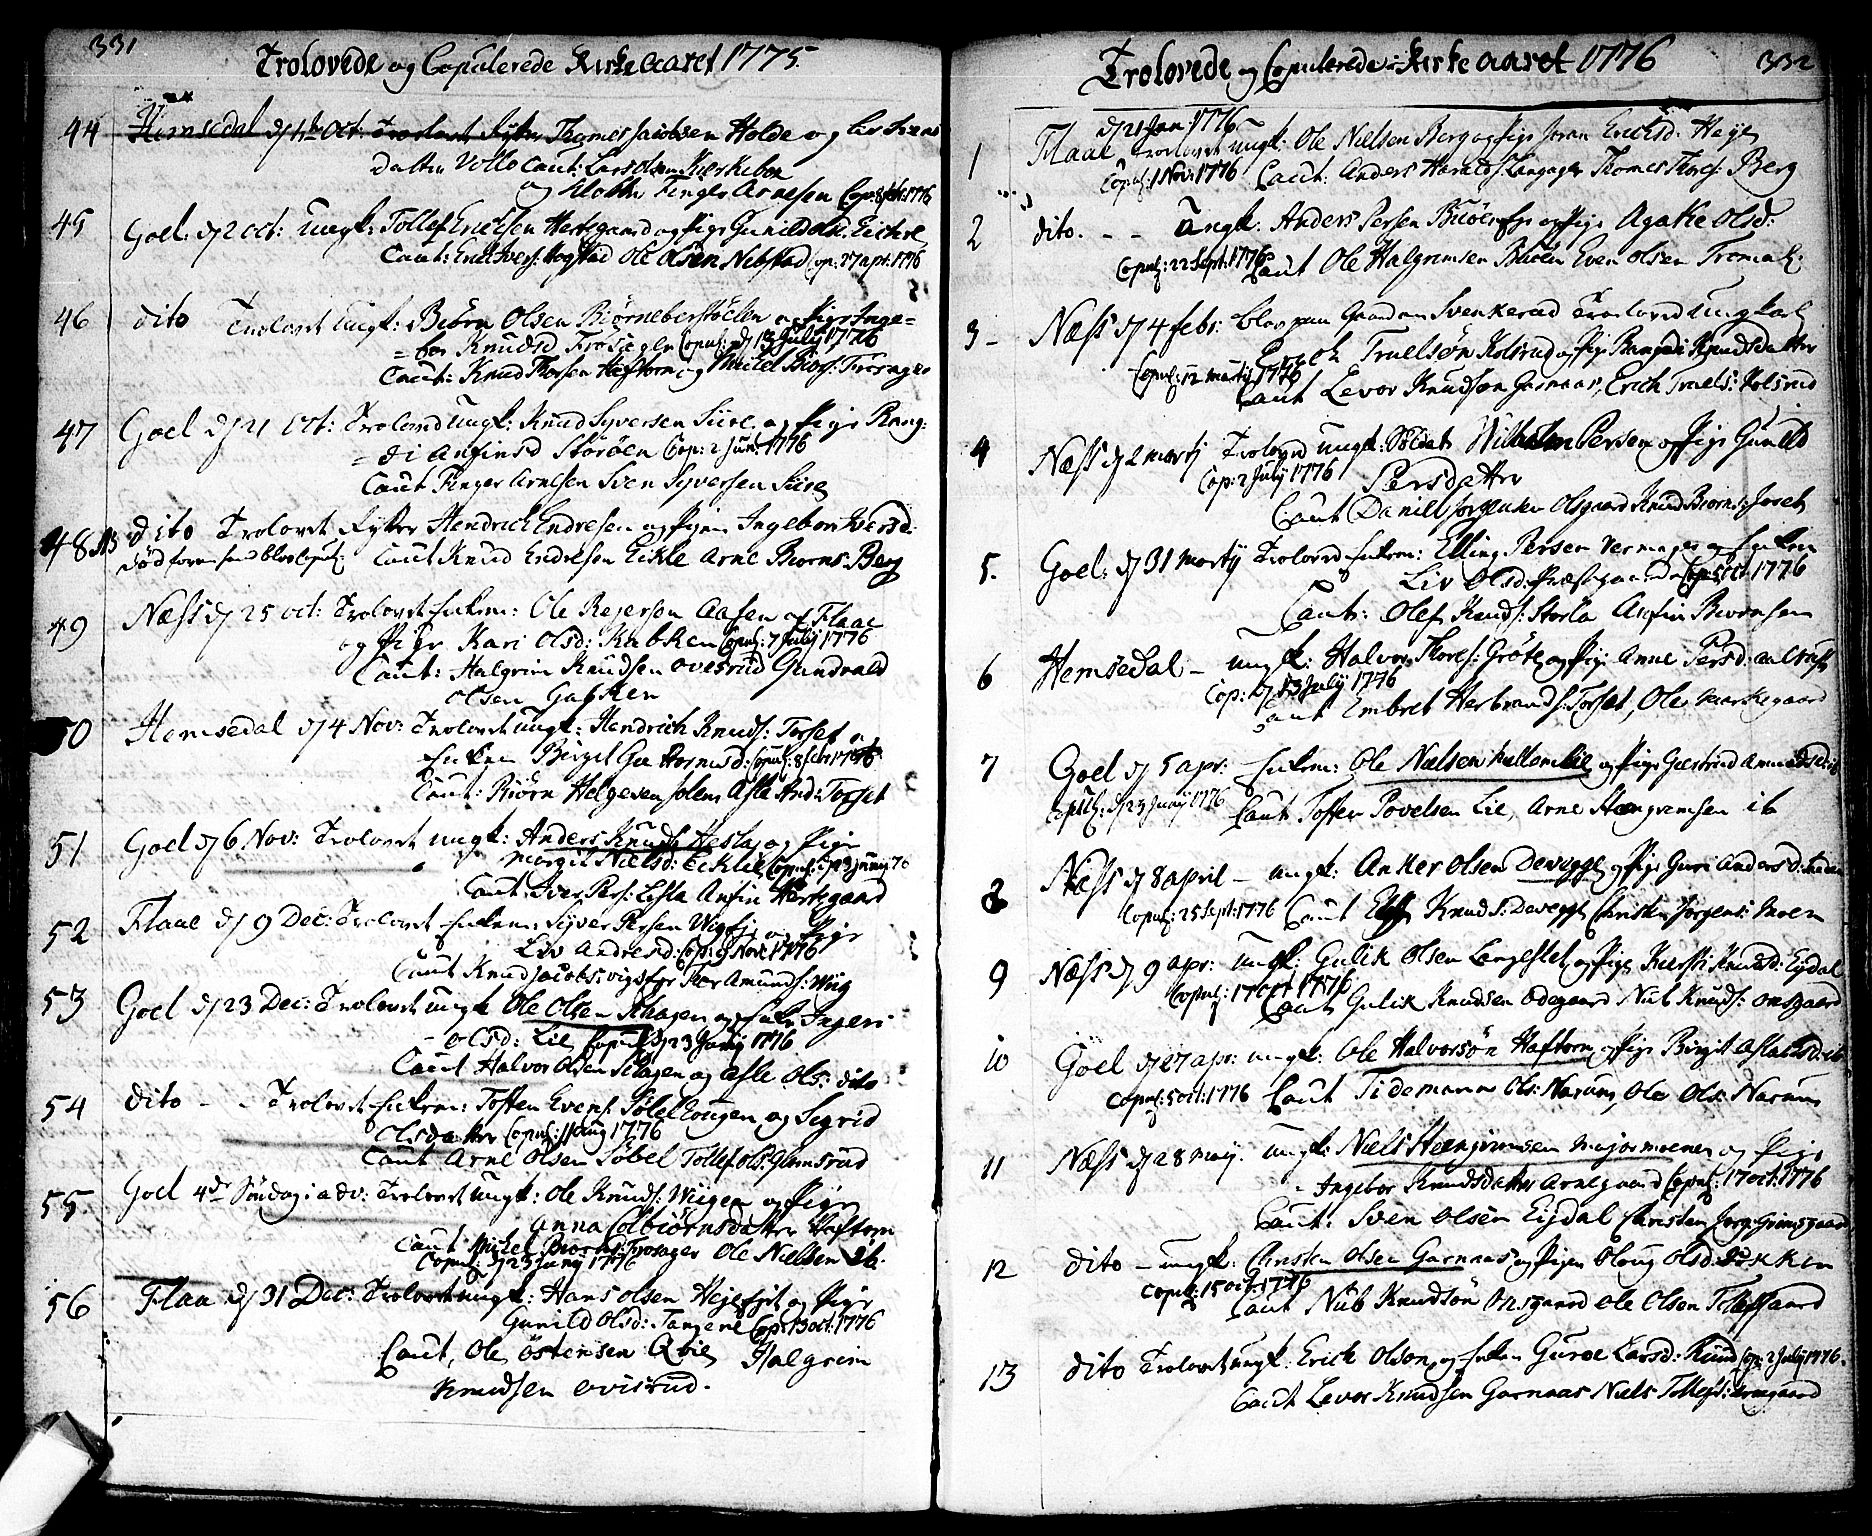 331
Trolovede og Copulerede Kirke Aaret 1775.
44 Hemsedal d/ Oct: Trolovet Rytter Thomes Jacobsen Holde og Liv Svens
datter Vollo Caut: Lars Olsen Kirkebøn
og Kloth Finger Arnesen Cop: 8 febr: 1776
45 Goel d/ 2 oct: Ungk: Tollef Erichsen Hertsgaard og Pige Gunild Eickre
Caut: Erik Ivers: Hogstad Ole Asen Nibstad Cop: 27 apr: 1776
46 dito Trolovet Ungk: Biørn Olsen Biørneberstølen og Pige Inge=
=bor Knudsd Frøsager Copul: d/ 13 July 1776
Caut: Knud Thorsen Haftorn og Mikel Biør: Frøsager
47 Goel d/ 21 Oct: Trolovd Ungk: Knud Syversen Siire og Pige Rang:
=di Anfinsd Storøen Cop: 2 Jun: 1776
Caut Finger Arnesen Sven Syversen Siire
48 dito Trolovet Rytter Hendrich Endresen og Pigen Ingebor Iversd:
død foren hand blev Copul: Caut Knud Endresen Eikle Arne Biorns: Berg
49 Næss d/ 25 oct: Trolovet Enkem: Ole Rejerson Aasen af Flaae
og Pige Kari Olsd: Kubken Copul: 7 July 1776
Caut: Halgrim Knudsen Ovesrud Gundvald
Olsen Gubken
50 Hemsedal d/ 4 Nov: Trolovet Ungk: Hendrich Knuds: Torset og
Enken Birgit Copul: 8 febr 1776
Caut: Biørn Helgesen Jolen Asle And: Torset
51 Goel d/ 6 Nov: Trolovet Ungk: Anders Knuds Hesla og Pige
Margit Nielsd: Eicklie Copul: d/ 23 Juny 76
Caut: Iver Pers: Eikla Anfin Hertsgaard
52 Flaae d/ 9 Dec: Trolovet Enkem: Syver Persen Wigsje og Pige
Liv Andresd: Cop: 9 Nov: 1776
Caut Knud Jacobs: Vigsje Per Amunds: Wiig
53 Goel d/ 23 Dec: Trolovet Ungk Ole Olsen Skagen og Enke Ingeri
Olsd: Lie Copul: d/ 23 Juny 1776
Caut Halvor Olsen Skagen og Asle Ols: dito
54 dito - - Trolovet Enkem: Tosten Evens: Sølel Eougen og Segrid
Olsdatter Copul: 11 Aug 1776
Caut Arne Olsen Søbel Tollef Ols: Glømsrud
55 Goel 4de Søndag i adv: Trolovet Ungk: Ole Knuds: Wiigen og Pige
Anna Colbiörnsdatter Haftorn
Caut Mickel Biorns: Frøsager Ole Nielsen ib.
Copul: d/ 23 Juny 1776
56 Flaa d/ 31 Dec: Trolovet Ungk: Hans Olsen Hejesgt og Pige
Gunild Olsd: Tangene Cop: 13 oct: 1776
Caut, Ole Östensen Qvie, Halgrim
Knudsen Ovisrud.
332
Trolovede og Copulerede i Kirke Aaret 1776
d/ 21 Jan 1776
1 Flaae Trolovet Ungk: Ole Nielsen Berg og Pige Joran Ericksd: Heye
Copul: 1 Nov: 1776 Caut: Anders Haralds: Langager Thomes Thores: Berg
2 dito. - - Ungk: Anders Persen og Pige Agate Olsd:
Copul: 22 Sept: 1776 Caut Ole Halgrimsen Buøen Even Olsen Tromald:
3 - Næss d/ 4 febr: blev paa Gaarden Svenkerud Trolovd Ungkarl
Enoch Truelsøn Kolsrud og Pige Rangdi Knudsdatter
Copul: 12 marty 1776 Caut Levor Knudsøn Garnaas, Erich Truels: Kolsrud
4 Næss d/ 2 marty Trolovd Ungk: Soldat Wilhelm Persen og Pige Gunild
Cop: 2 July 1776 Persdatter
Caut Daniel Jorgensen Olsgaard Knud Biorns: Joseth
5. Goel: d/ 31 marty Trolovd Enkem: Elling Persen Vermager og Enken
Liv Olsd: Præstgaard Cop: 5 oct: 1776
Caut: Olef Knuds: Storla Anfin Biornsen
6 Hemsedal - Ungk: Halvor Thores: Gröte og Pige Anne Persd:
Cop: d/ 13 July 1776
Caut Embret Herbrands: Torset, Ole Markegaard
7 Goel d/ 5 apr: Enkem: Ole Nielsen Mellemlie og Pige Giertrud Amundsd: ib
Copul: d/ 23 Juny 1776 Caut Tosten Povelsen Lie, Arne Hængremsen ib
8 Næss d/ 8 april - Ungk: Anker Olsen Devegge og Pige Guri Andersd:
Copul: 25 Sept: 1776 Caut Knuds: Devegge Christen Jörgens: Moen
9 Næss d/ 9 apr: Ungk: Gulik Olsen Langeslet og Pige Kiersti Knudsd: Eydal
Copul: 17 oct 1776 Caut Gulik Knudsen Ødegaard Nub Knuds: Onsgaard
10 Goel d/ 27 apr: Ungk: Ole Halvorsön Haftorn og Pige Birgit Aslaksd: ib
Copul: 5 oct: 1776 Caut Tidemann Ols: Narum, Ole Ols: Narum
11 Næss d/ 28 maj: Ungk: Niels Hængrimsen Mejormoenen og Pige
Ingebor Knudsdatter Arnegaard Copul: 17 oct: 1776
Caut: Sven Olsen Eijdal Christen Jorg: Grimsgaard
12 dito - Ungk: Christen Olsen Garnaas og Pigen Aloug Olsd: Bekken
Copul: 15 oct: 1776 Caut Nub Knudsön Onsgaard Ole Olsen Tollefsgaard
13 dito Trolovet Ungk: Erick Olson og Enken Guroe Larsd: Rund Cop: 2 July 1776.
Caut Levor Knudsen Garnaas Niels Tollefs: